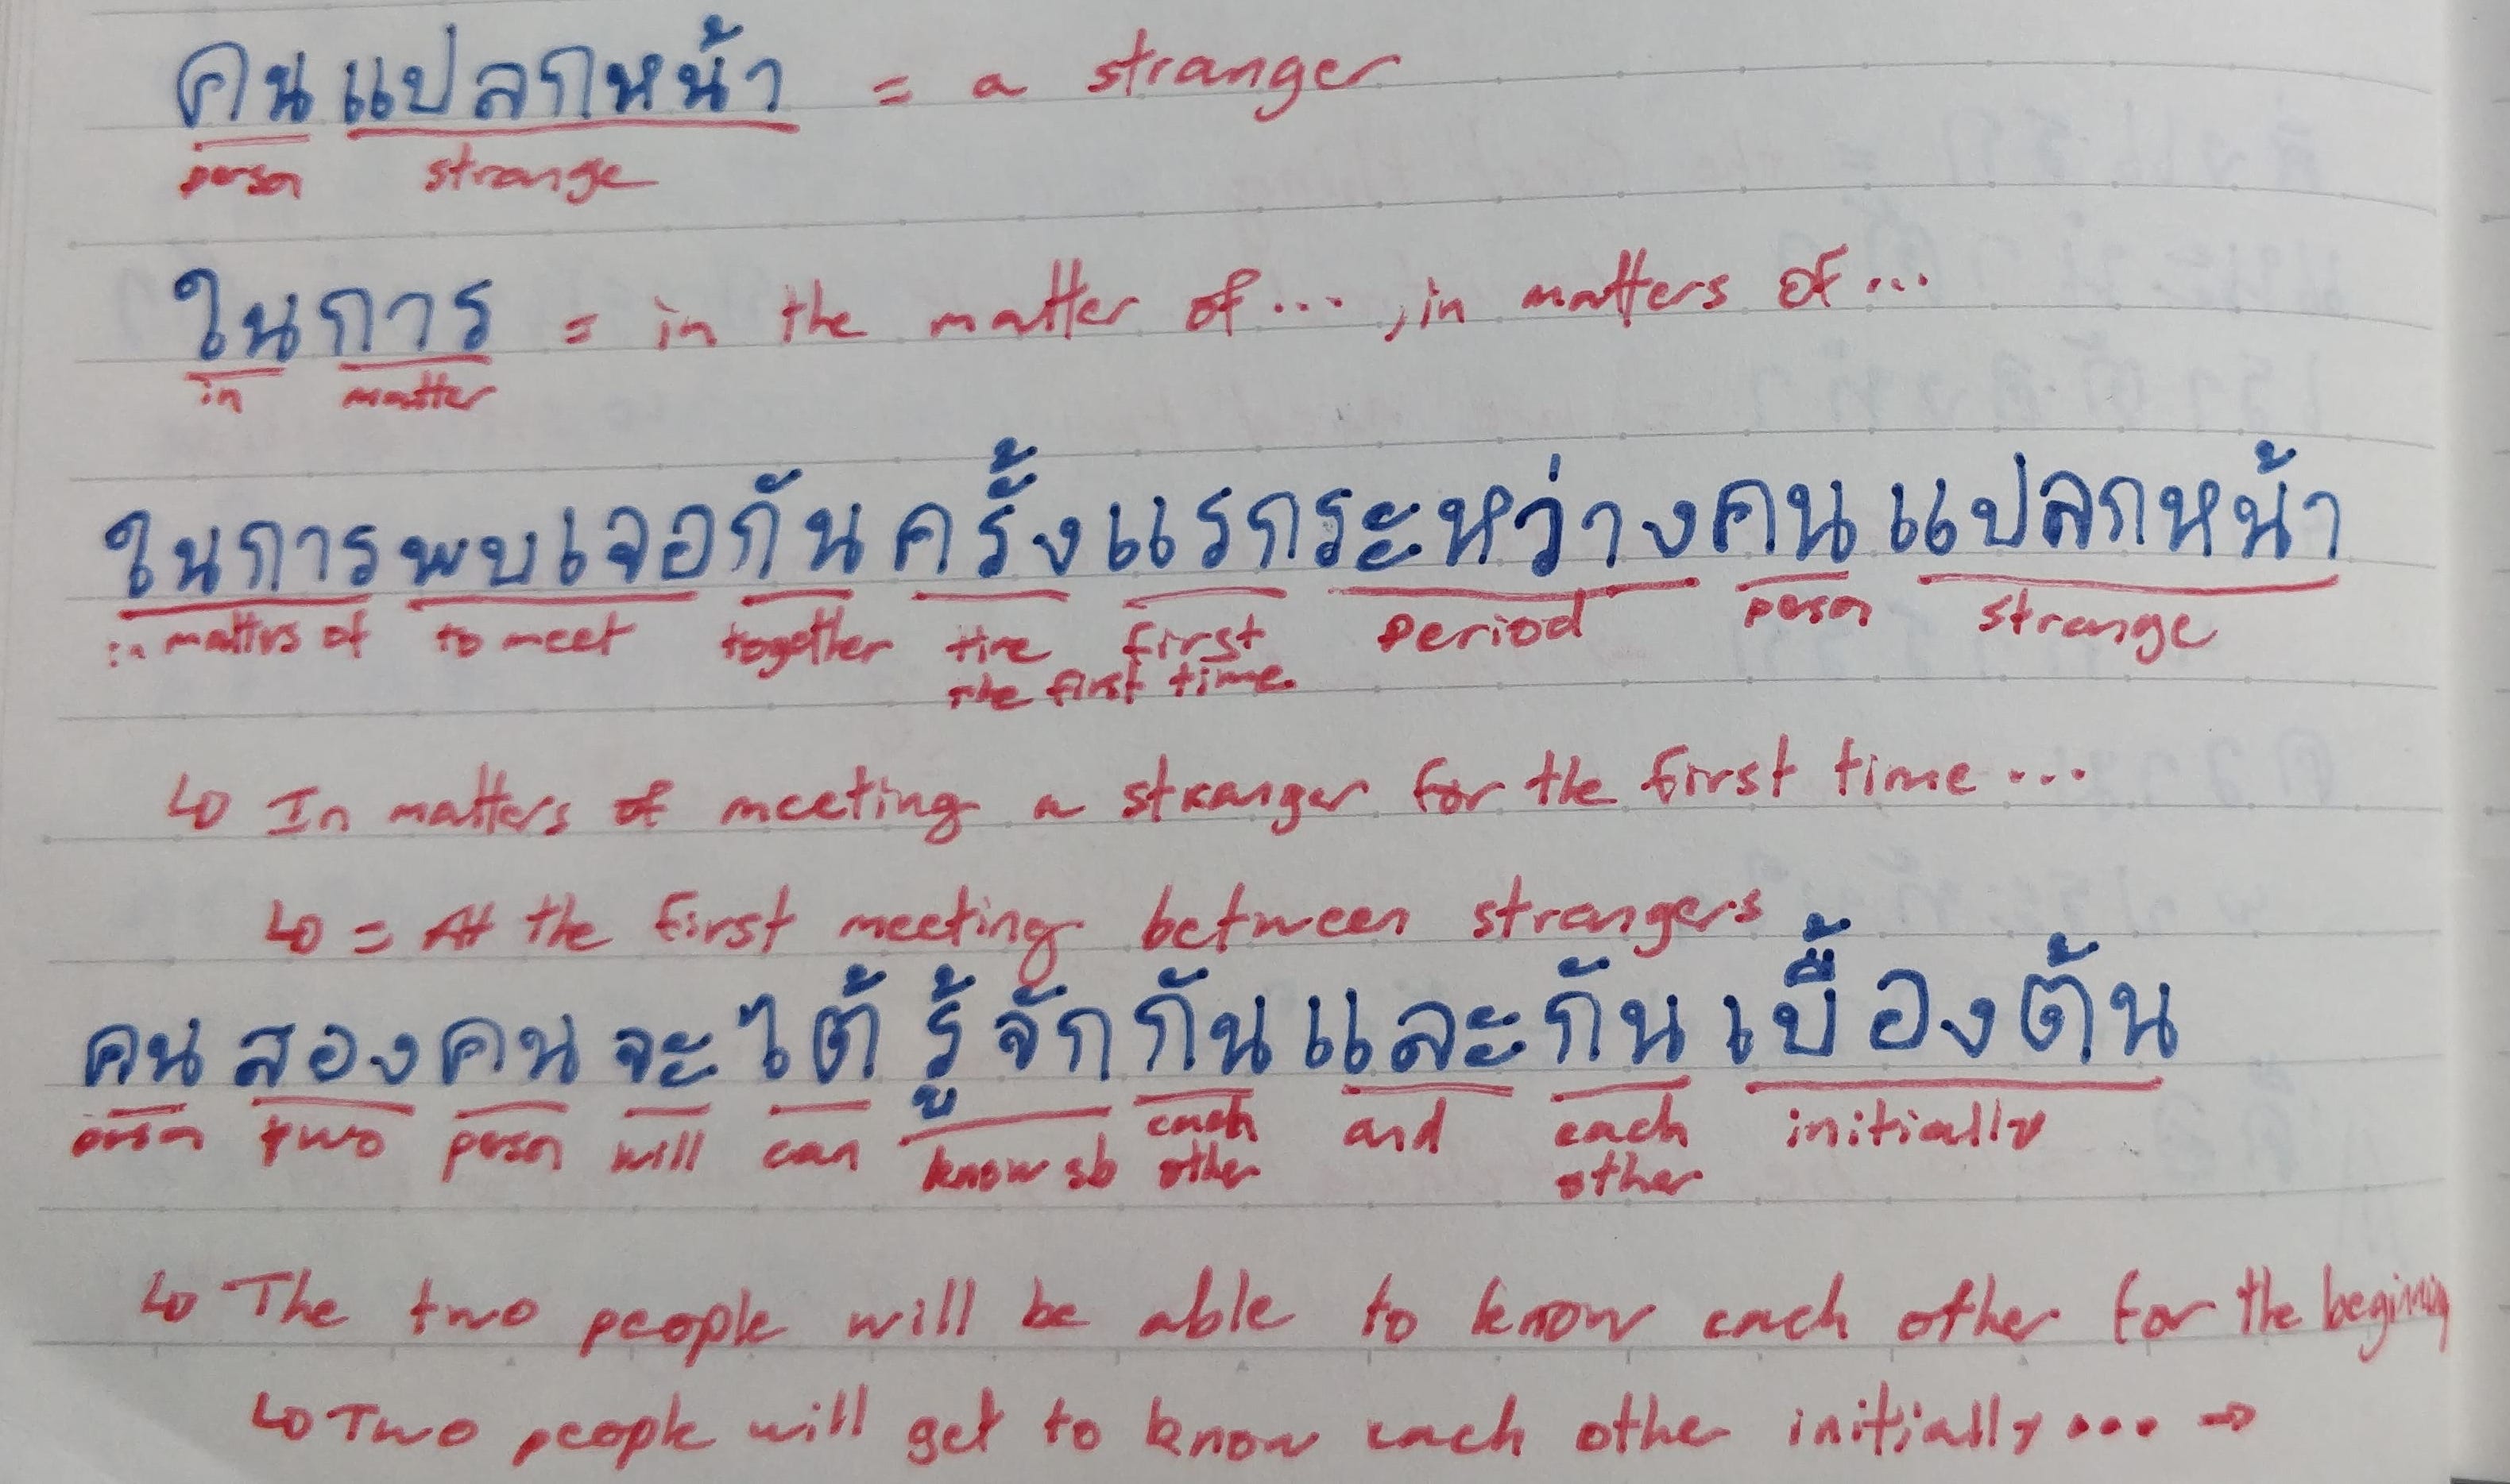 คนแปลกหน้า = a stranger
person strange
ในการ = in the matter of..., in matters of...
in matter
ในการพบเจอกันครั้งแรกระหว่างคนแปลกหน้า
in matters of to meet together time first period person strange
the first time.
↳ In matters of meeting a stranger for the first time...
↳ = At the first meeting between strangers
คนสองคนจะได้รู้จักกันและกันเบื้องต้น
person two person will can know sb each other and each other initially
↳ The two people will be able to know each other for the begining
↳ Two people will get to know each other initially... →